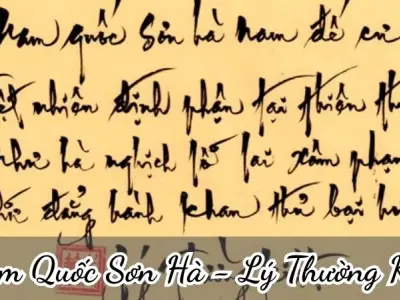 Nam quốc Sơn hà nam đế cư
nhiên định phận tại thiên th
như hà nghịch lỗ lai xâm phạm
đẳng hành khan thủ bại hư
m Quốc Sơn Hà - Lý Thường K